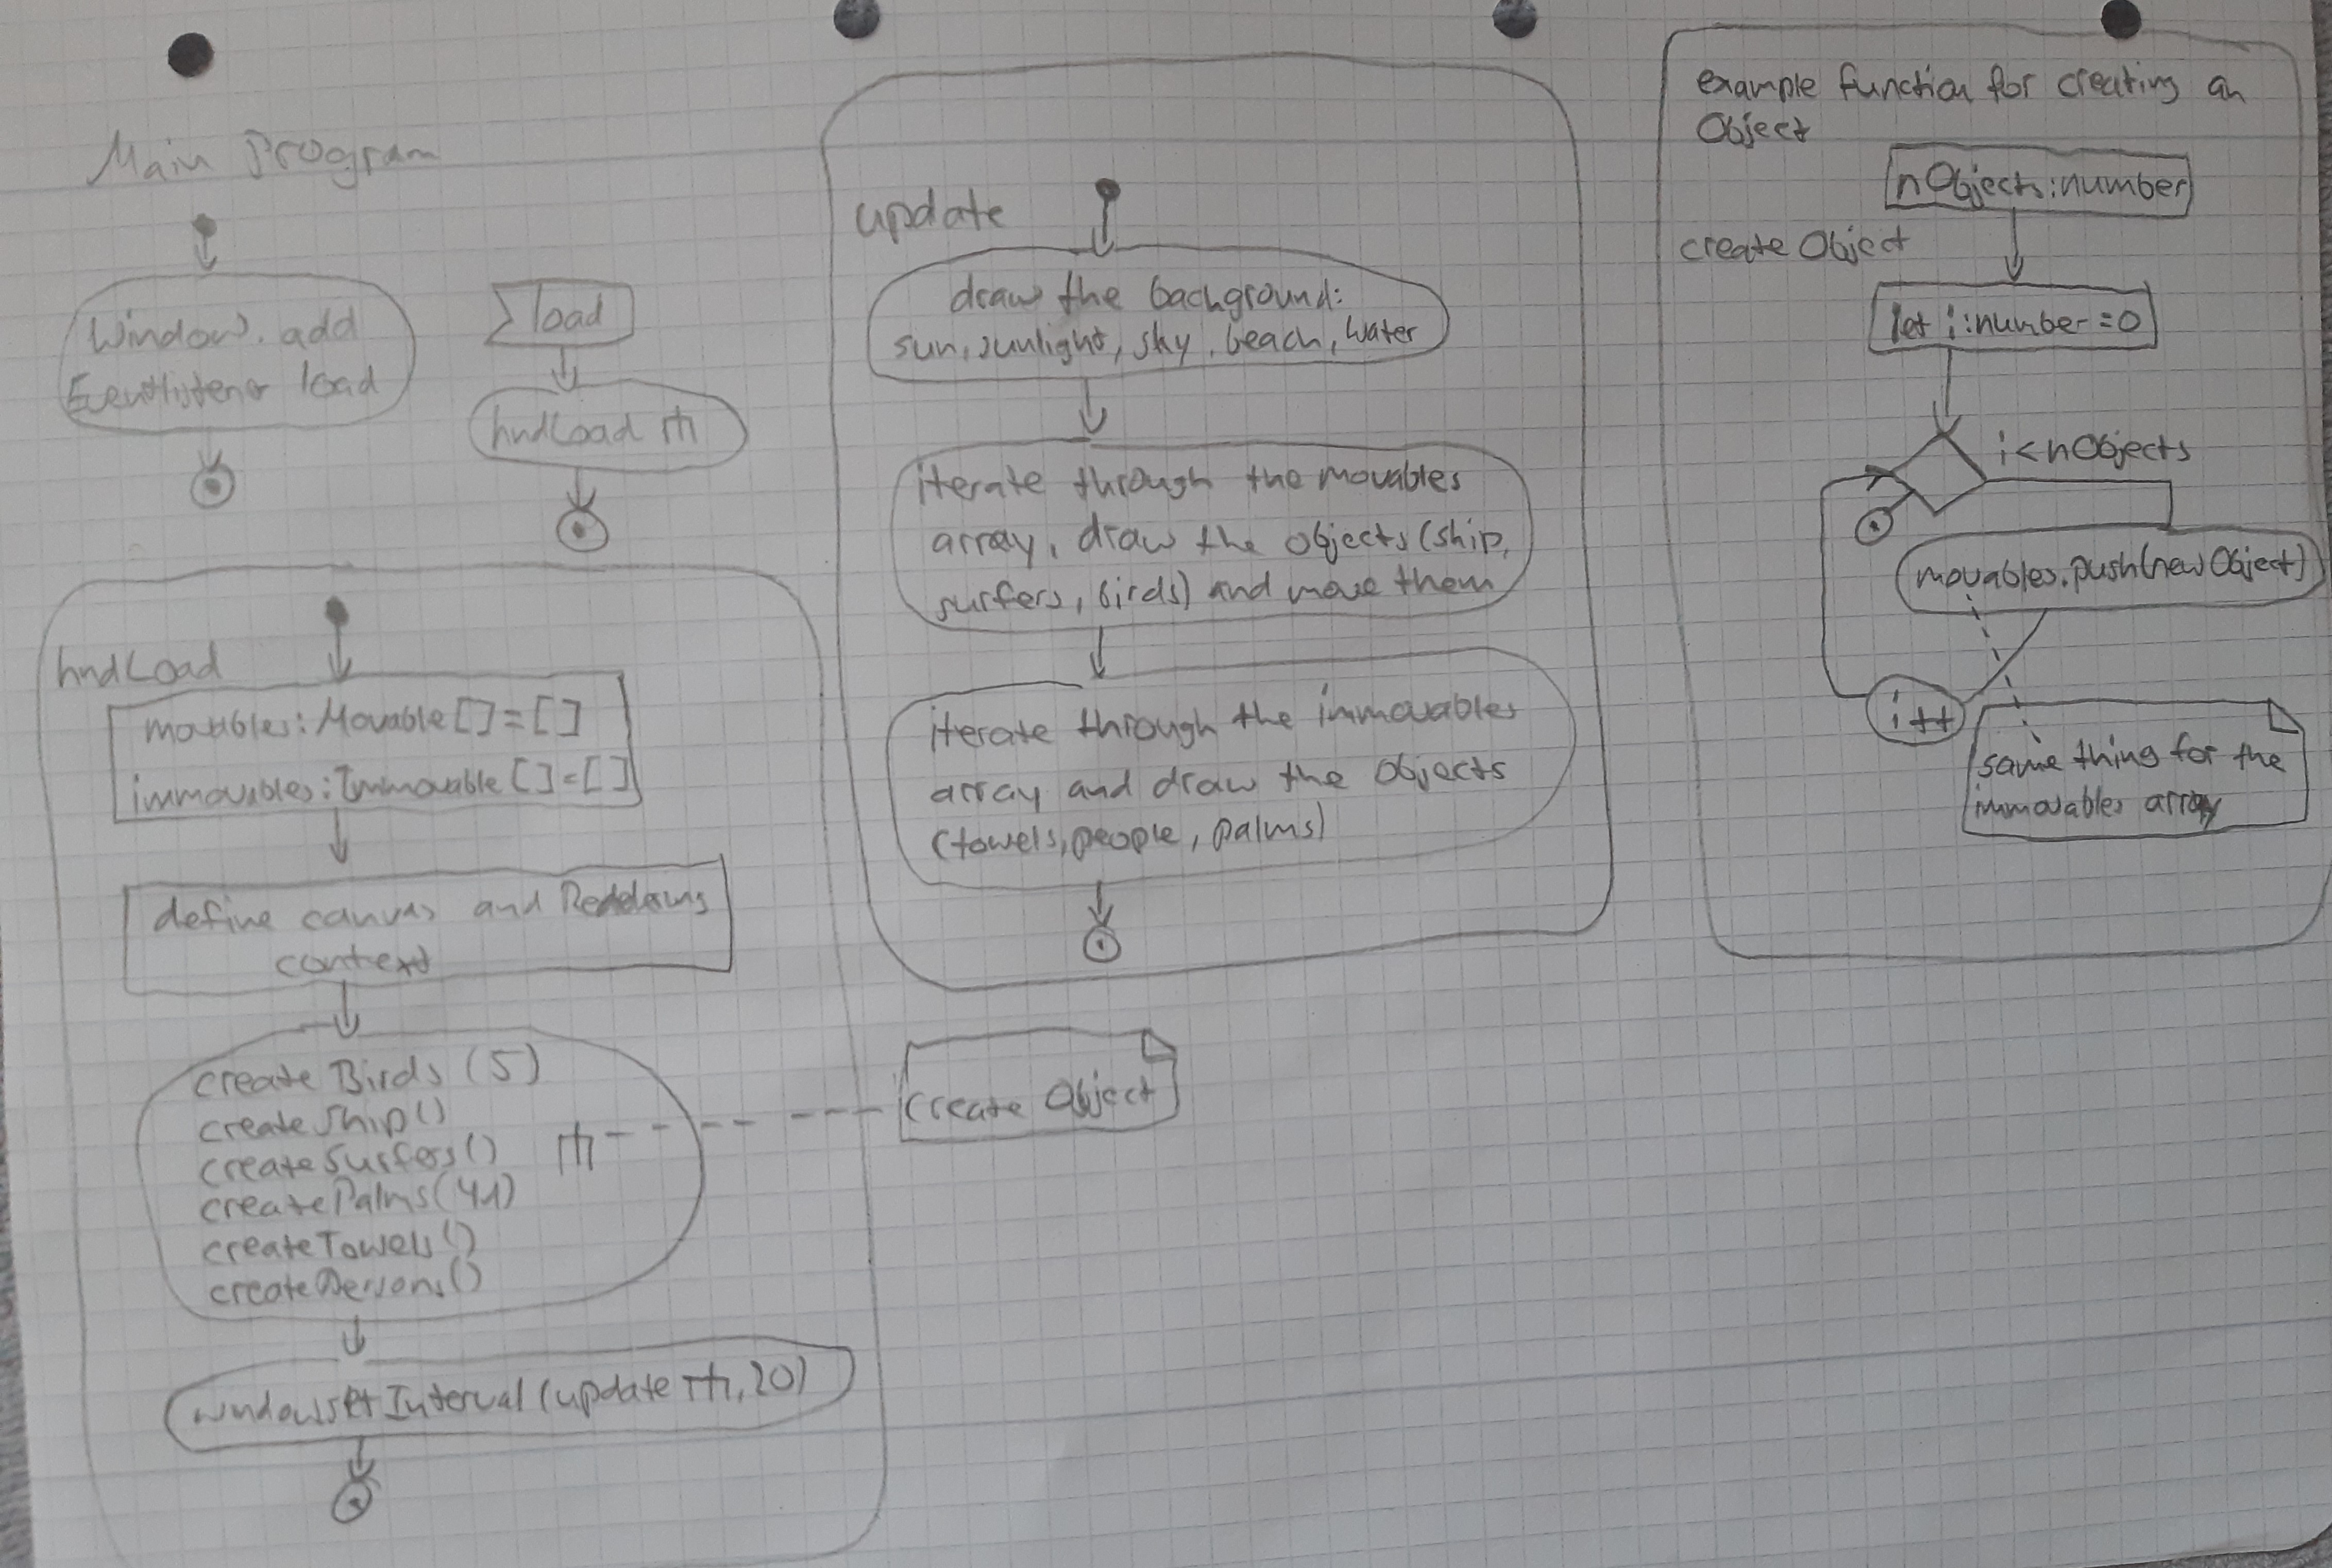 Main Program
Window. add
Eventlistener load
load
hndLoad
hndLoad
movables: Movable[]=[]
immovables: Immovable[]=[]
define canvas and
context
create Birds (5)
createShip()
createSurfers()
createPalms(41)
createTowels()
createPersons()
Interval (update , 20)
update
draw the background:
sun, sunlight, sky, beach, water
iterate through the movables
array, draw the objects (ship,
surfers, birds) and move them
iterate through the immovables
array and draw the objects
(towels, people, palms)
Create Object
example function for creating an
Object
nObjects: number
create Object
let i: number = 0
i < nObjects
movables.push(new Object)
i++
same thing for the
immovables array